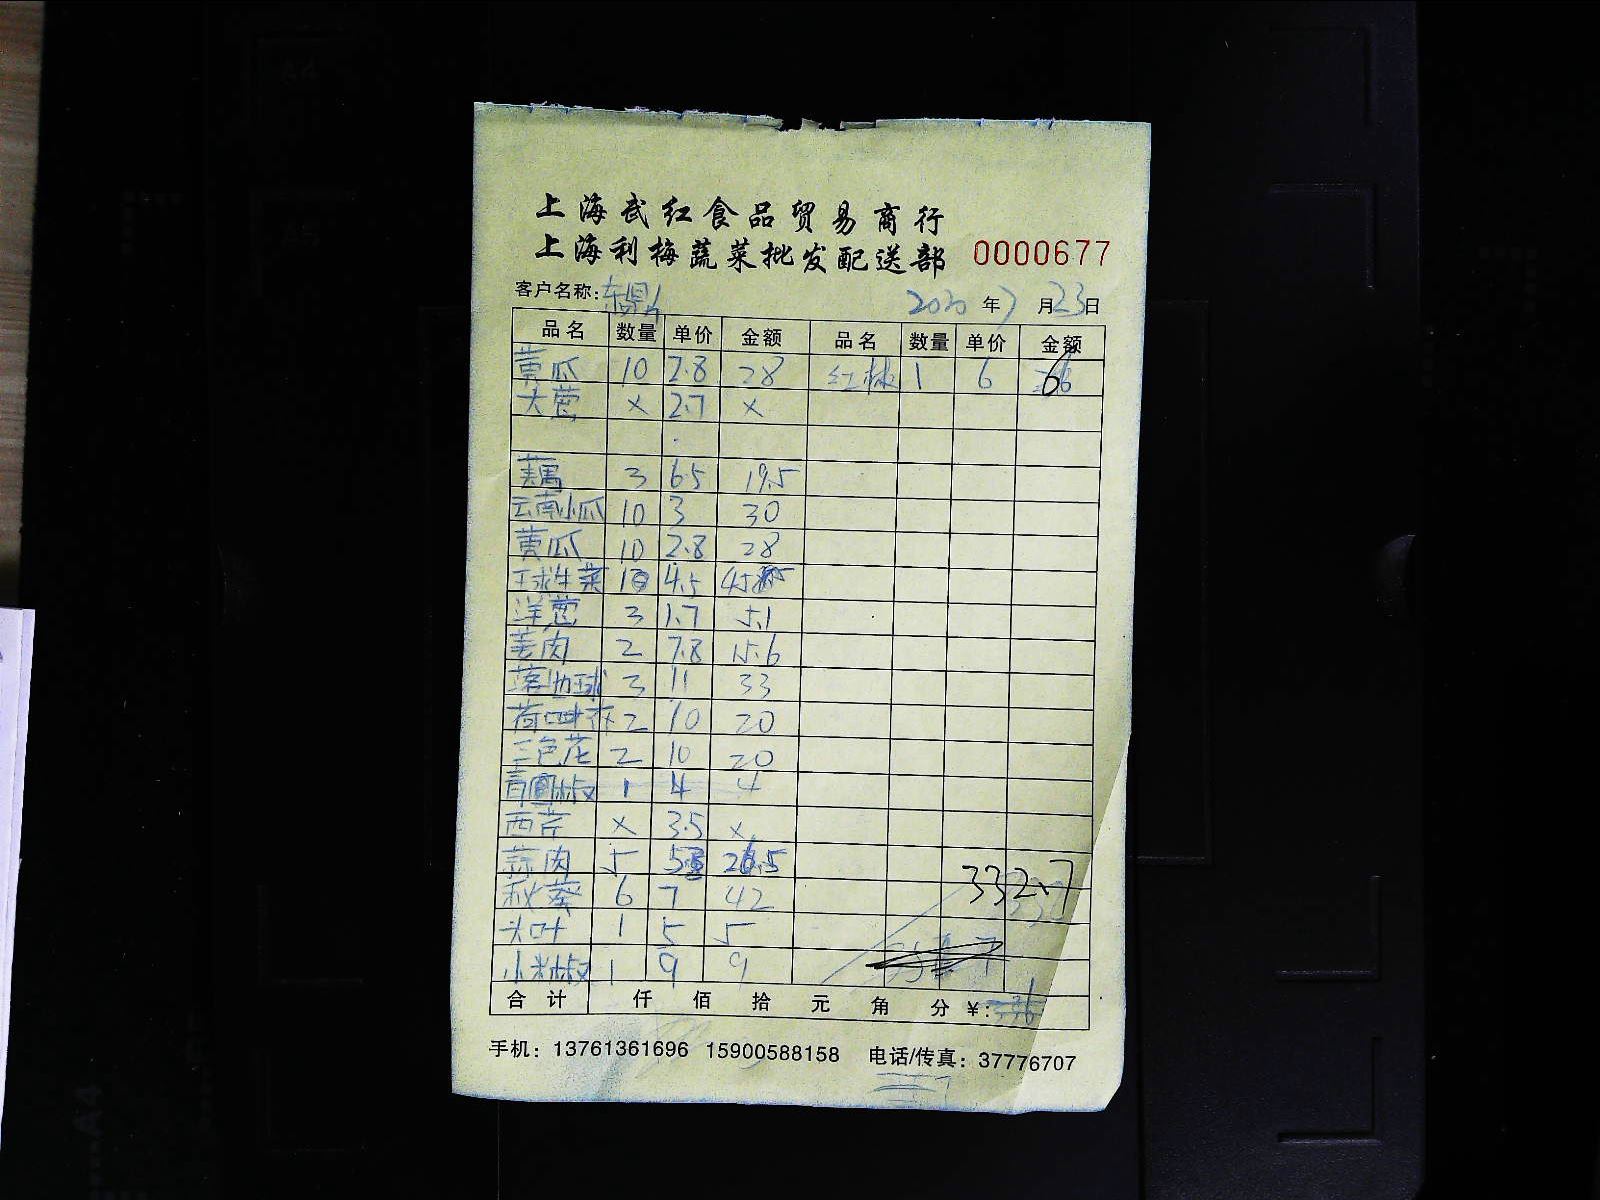 上海武红食品贸易商行
上海利梅蔬菜批发配送部 0000677
客户名称: 2020年7月23日
品名 数量 单价 金额 品名 数量 单价 金额
黄瓜 10 2.8 28 红椒 1 6 6
大葱 × 2.7 ×
藕 3 6.5 19.5
云南小瓜 10 3 30
黄瓜 10 2.8 28
球生菜 10 4.5 45
洋葱 3 1.7 5.1
姜肉 2 7.8 15.6
3 11 33
2 10 20
三色花 2 10 20
青圆椒 1 4 4
西芹 × 3.5 ×
蒜肉 5 5.3 26.5
秋葵 6 7 42
332.7
头叶 1 5 5
小米椒 1 9 9
合计 仟 佰 拾 元 角 分 ¥: 336
手机: 13761361696 15900588158 电话/传真: 37776707